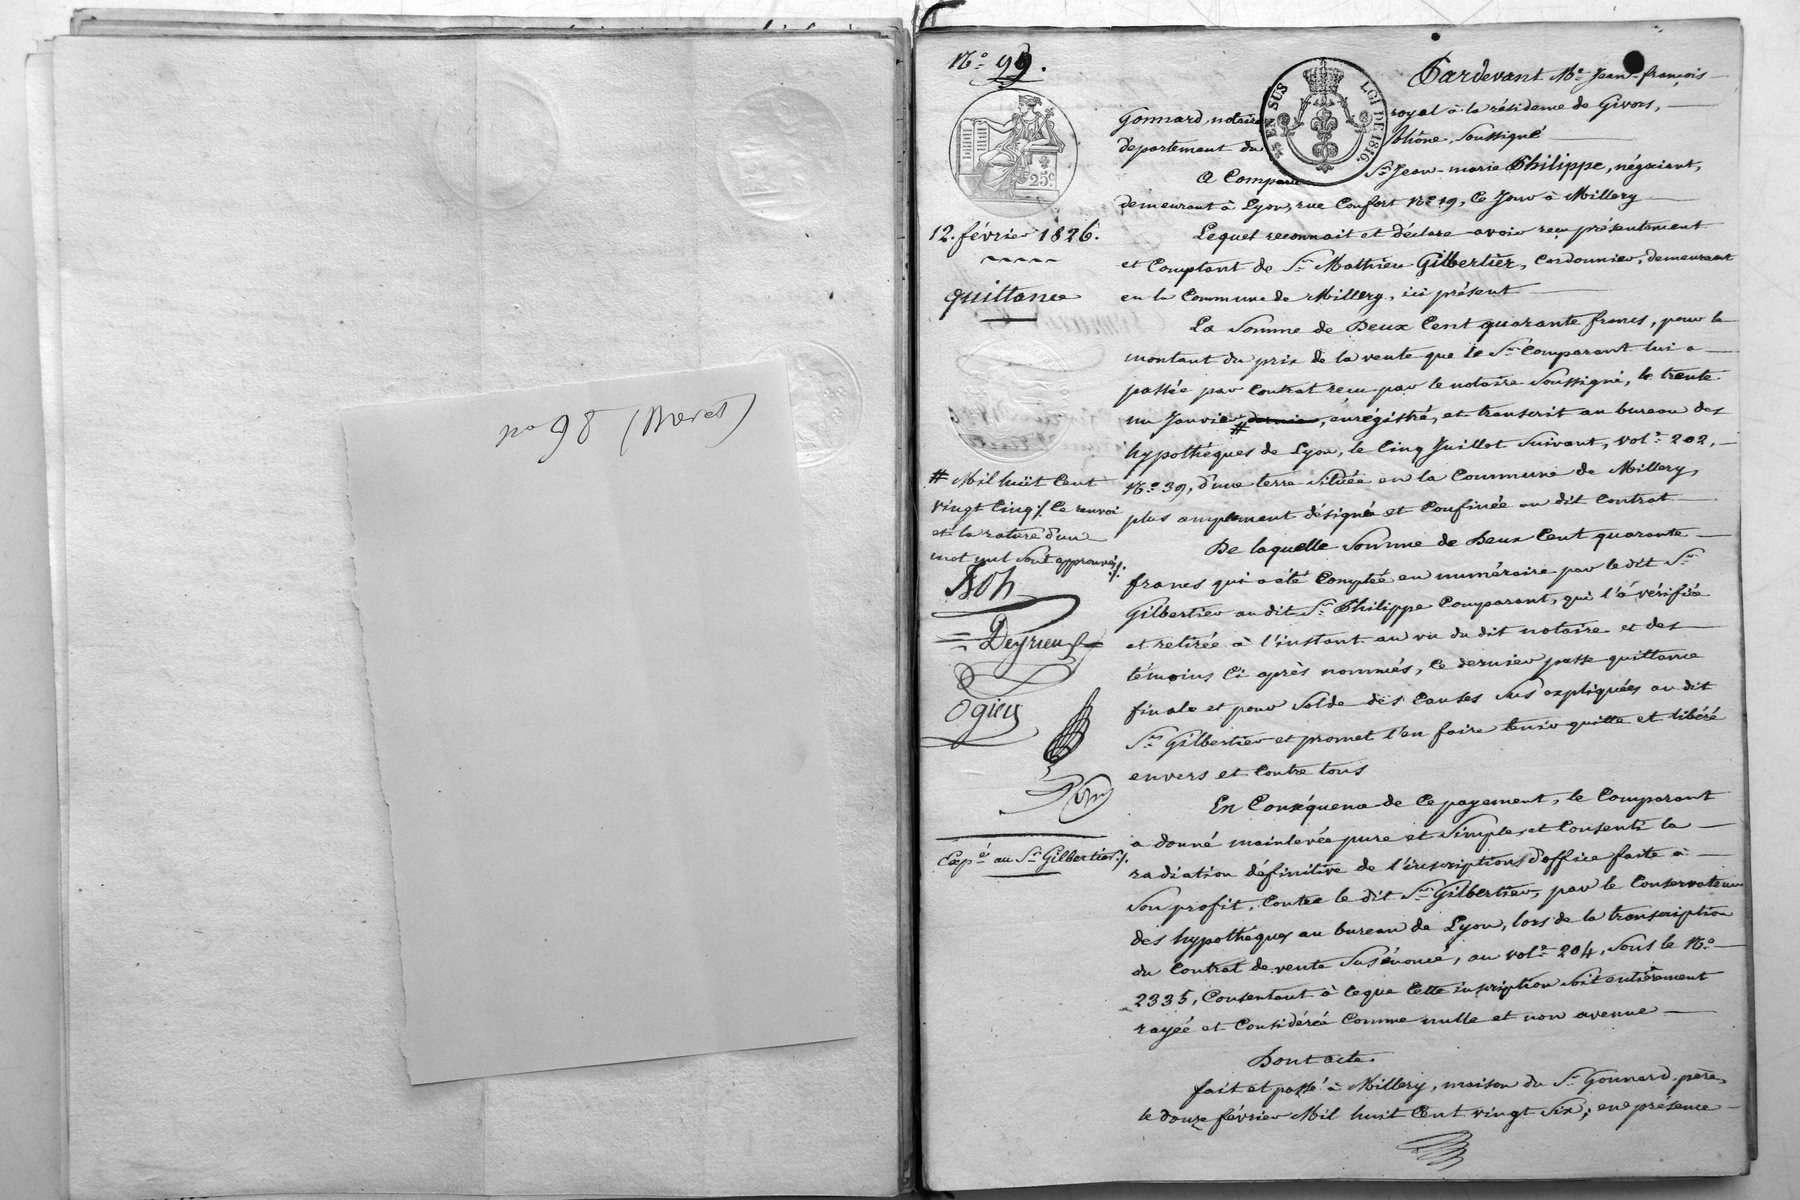 no 98 (Brevet)
No 99.
25c
12. février 1826.
quittance
# Mil huit Cent
vingt Cinq ./. Ce renvoi
et la rature d'un
mot nul sont approuvés ./.
Deyrieux
Ogier
Expé au Sr Gilbertier ./.
25 EN SUS LOI DE 1816.
Pardevant Me Jean-françois
Gonnard, notaire royal à la résidence de Givors,
département du Rhône, soussigné
A Comparu Sr Jean-marie Philippe, négociant,
demeurant à Lyon, rue Confort No 19, Ce Jour à Millery
Lequel reconnait et déclare avoir reçu présentement
et Comptant de Sr Mathieu Gilbertier, Cordonnier, demeurant
en la Commune de Millery, ici présent
La Somme de Deux Cent quarante francs, pour le
montant du prix de la vente que le Sr Comparant lui a
passée par Contrat reçu par le notaire soussigné, le trente
un Janvier # dernier, enrégistré, et transcrit au bureau des
hypothéques de Lyon, le Cinq Juillet suivant, vole 202,
No 39, d'une terre située en la Commune de Millery,
plus amplement désignée et Confinée au dit Contrat
De laquelle Somme de Deux Cent quarante
francs qui a été Comptée en numéraire par le dit Sr
Gilbertier au dit Sr Philippe Comparant, qui l'a vérifiée
et retirée à l'instant au vu du dit notaire et des
témoins Ci après nommés, Ce dernier passe quittance
finale et pour solde des Causes sus expliquées au dit
Sr Gilbertier et promet l'en faire tenir quitte et libéré
envers et Contre tous
En Conséquence de Ce payement, le Comparant
a donné mainlevée pure et simple, et Consenti la
radiation définitive de l'inscriptions d'office faite à
son profit, Contre le dit Sr Gilbertier, par le Conservateur
des hypothéques au bureau de Lyon, lors de la transcription
du Contrat de vente susénoncé, au vole 204, sous le No
2335, Consentant à Ceque Cette inscription soit entièrement
rayée et Considérée Comme nulle et non avenue
Dont acte.
fait et passé à Millery, maison du Sr Gonnard père,
le douze février Mil huit Cent vingt Six; en présence